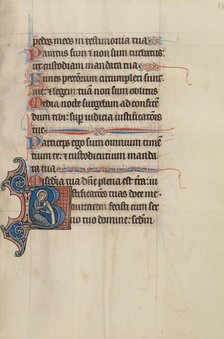 pedes meos in testimonia tua
Paratus sum et non sum turbatus
ut custodiam mandata tua
Funes peccatorum circumplexi sunt
me: et legem tuam non sum oblitus
Media nocte surgebam ad confiten
dum tibi: super iudicia iustificationis
tue
Particeps ego sum omnium timen
tium te: et custodientium manda
ta tua
Misericordia tua domine plena est terra: iu
stificationes tuas doce me
Bonitatem fecisti cum ser
uo tuo domine: secundum